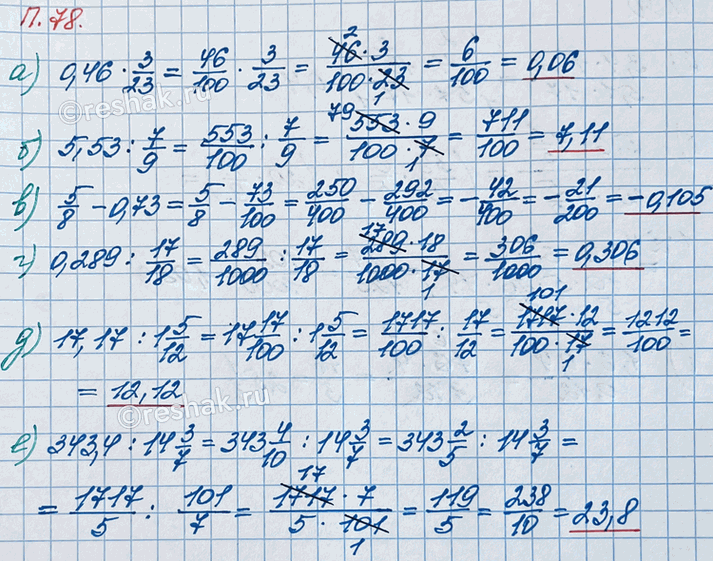 П. 78.
а) 0,46 · 3/23 = 46/100 · 3/23 = 46 2 · 3 / 100 · 23 1 = 6/100 = 0,06
©reshak.ru
б) 5,53 : 7/9 = 553/100 : 7/9 = 553 79 · 9 / 100 · 7 1 = 711/100 = 7,11
в) 5/8 - 0,73 = 5/8 - 73/100 = 250/400 - 292/400 = -42/400 = -21/200 = -0,105
г) 0,289 : 17/18 = 289/1000 : 17/18 = 289 17 · 18 / 1000 · 17 1 = 306/1000 = 0,306
д) 17,17 : 1 5/12 = 17 17/100 : 1 5/12 = 1717/100 : 17/12 = 1717 101 · 12 / 100 · 17 1 = 1212/100 =
= 12,12
©reshak.ru
е) 343,4 : 14 3/7 = 343 4/10 : 14 3/7 = 343 2/5 : 14 3/7 =
= 1717/5 : 101/7 = 1717 17 · 7 / 5 · 101 1 = 119/5 = 238/10 = 23,8